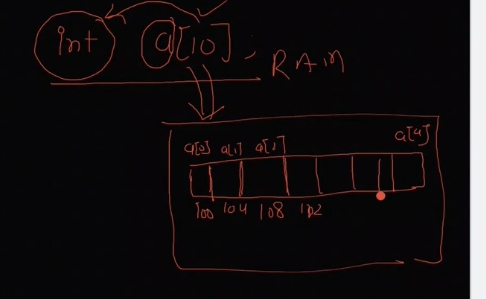 int a[10];
RAM
a[0] a[1] a[2] a[9]
100 104 108 112